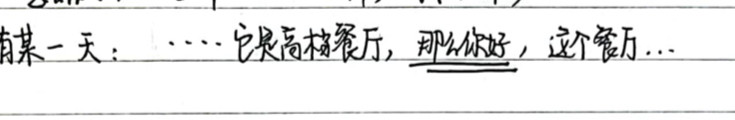 有某一天：·····它是高档餐厅，那么你好，这个餐厅...